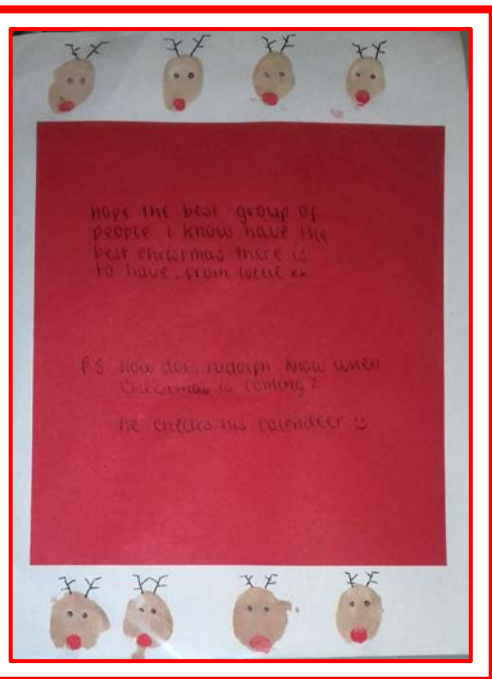 hope the best group of
people I know have the
best christmas there is
to have, from xx
P.S how does rudolph know when
Christmas is coming?
he checks his calendeer ☺